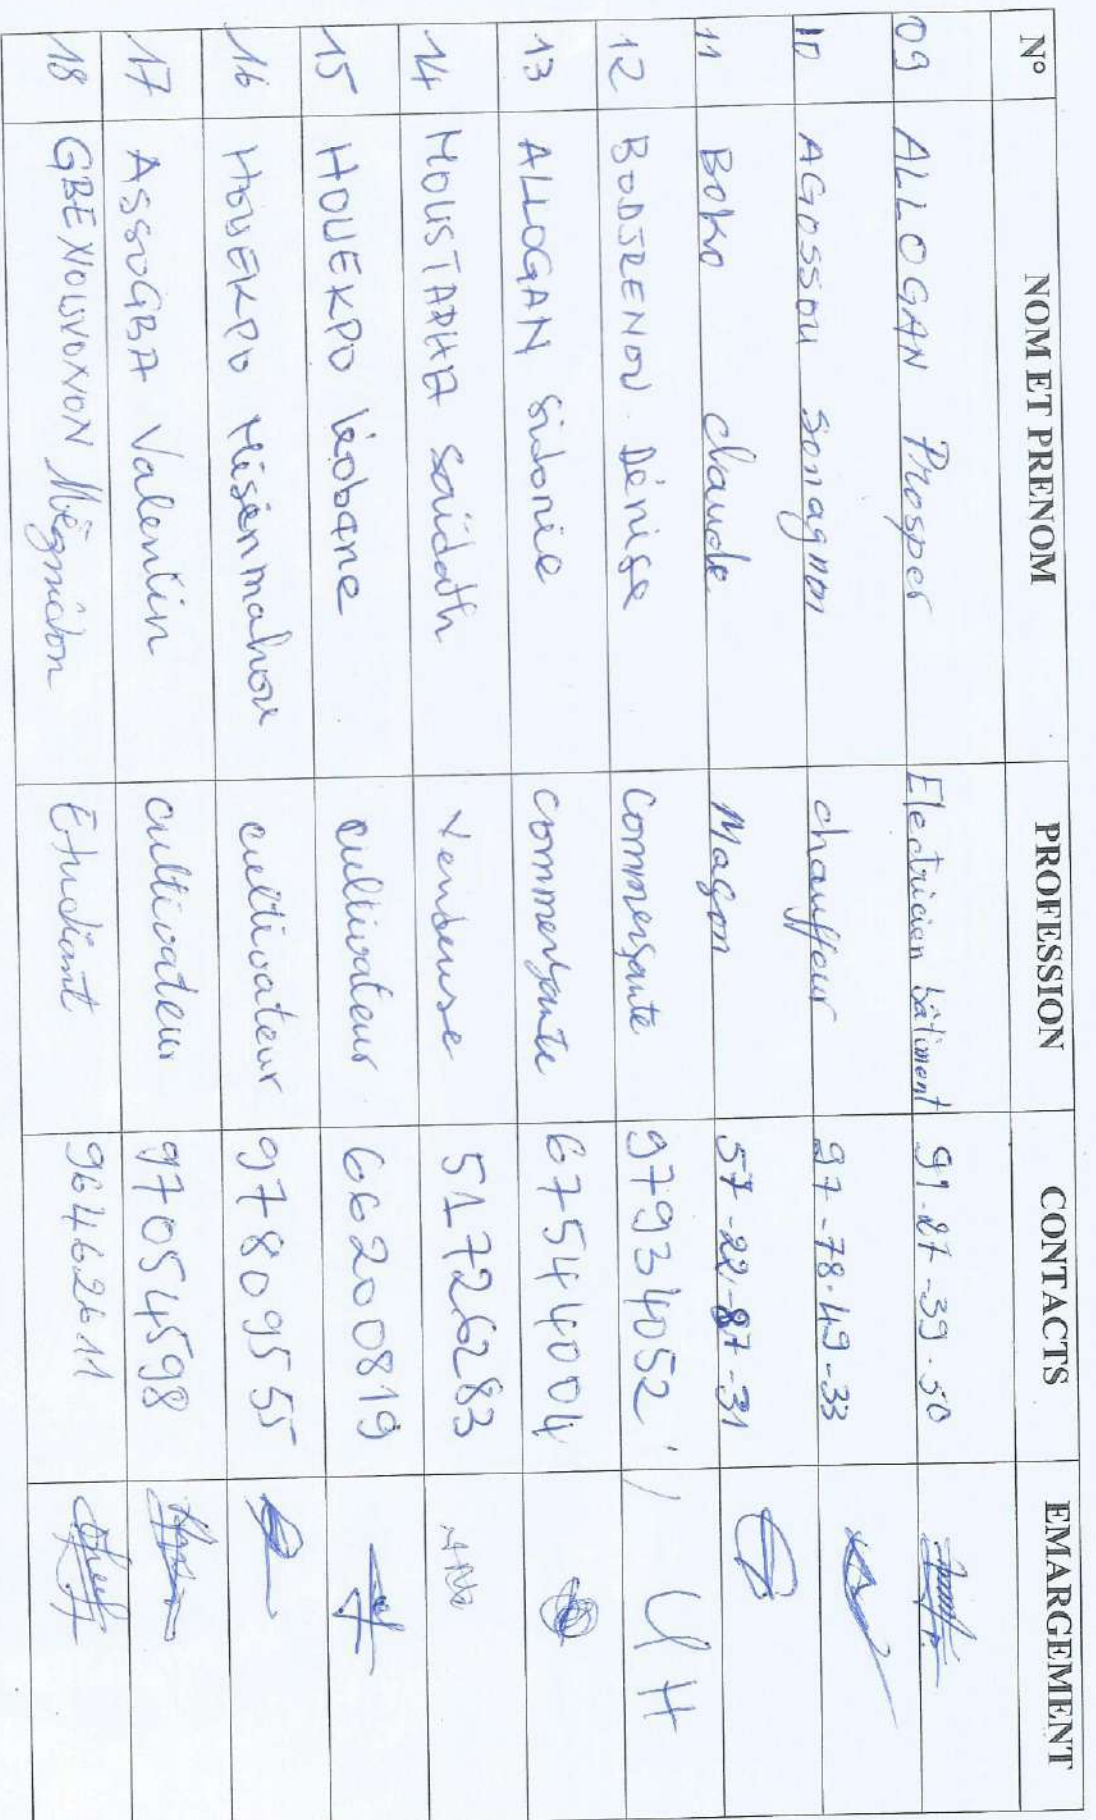 N° NOM ET PRENOM PROFESSION CONTACTS EMARGEMENT
09 ALLOGAN Prosper Electricien bâtiment 91-27-39-50
10 AGOSSOU Somagnon chauffeur 97-78-49-33
11 BOKO claude Maçon 57-22-87-31
12 BODJRENOU Dénise Commerçante 97934052
13 ALLOGAN Sidonie commerçante 67544004
14 MOUSTAPHA Saïdath Vendeuse 51726283
15 HOUEKPO Léobane cultivateur 66200819
16 HOUEKPO Misènmahou cultivateur 97809555
17 ASSOGBA Valentin cultivateur 97054598
18 Mègnidon Etudiant 96462611